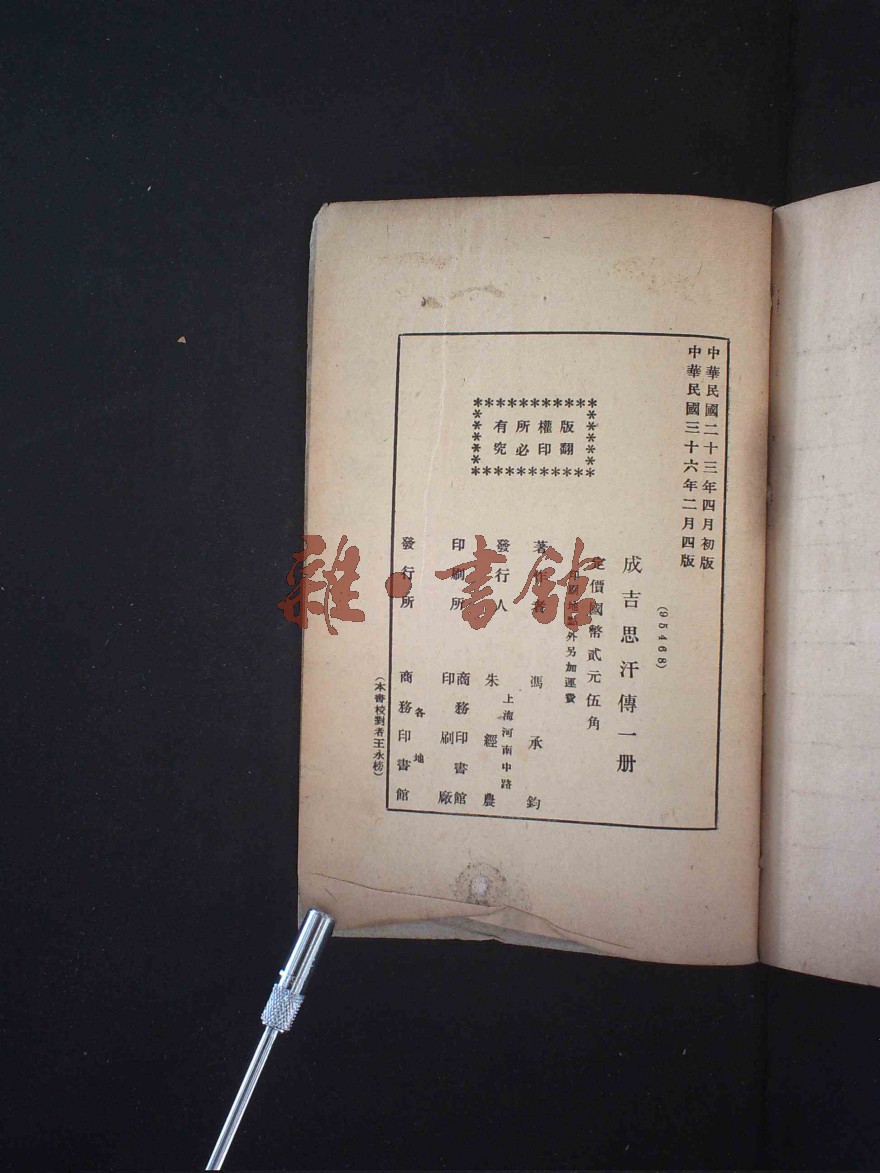 中華民國二十三年四月初版
中華民國三十六年二月四版
(95468)
成吉思汗傳一册
定價國幣貳元伍角
印刷地點外另加運費
版權所有
翻印必究
著作者 馮承鈞
發行人 朱經農
上海河南中路
印刷所 商務印書館印刷廠
發行所 各地商務印書館
(本書校對者王永榜)
雜·書館